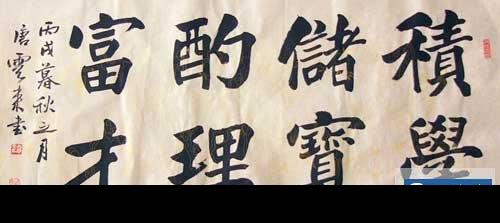 積學
儲寶
酌理
富才
丙戌暮秋之月
唐雲來書